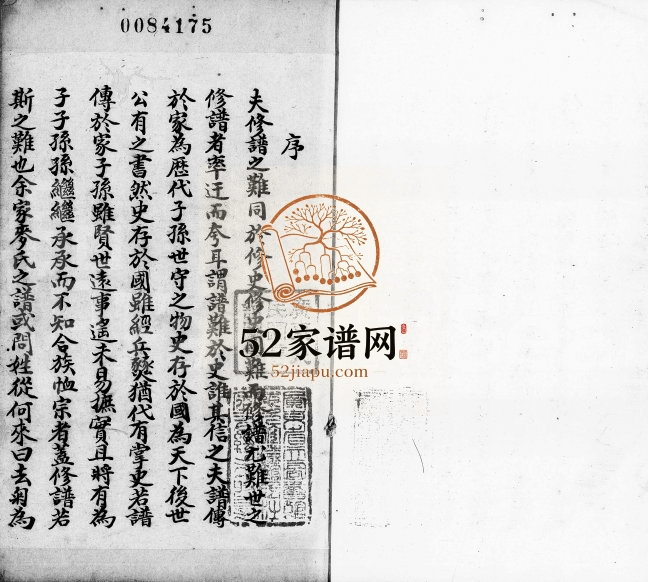 0084175
序
夫修譜之難同於修史修史難而修譜尤難世之
修譜者率迂而夸耳謂譜難於史誰其信之夫譜傳
於家為歴代子孫世守之物史存於國為天下後世
公有之書然史存於國雖經兵燹猶代有掌史若譜
傳於家子孫雖賢世遠事遙未易摭實且將有為
子子孫孫繼繼承承而不知合族恤宗者蓋修譜若
斯之難也余家麥氏之譜或問姓從何來曰去匊為
52家谱网
52jiapu.com